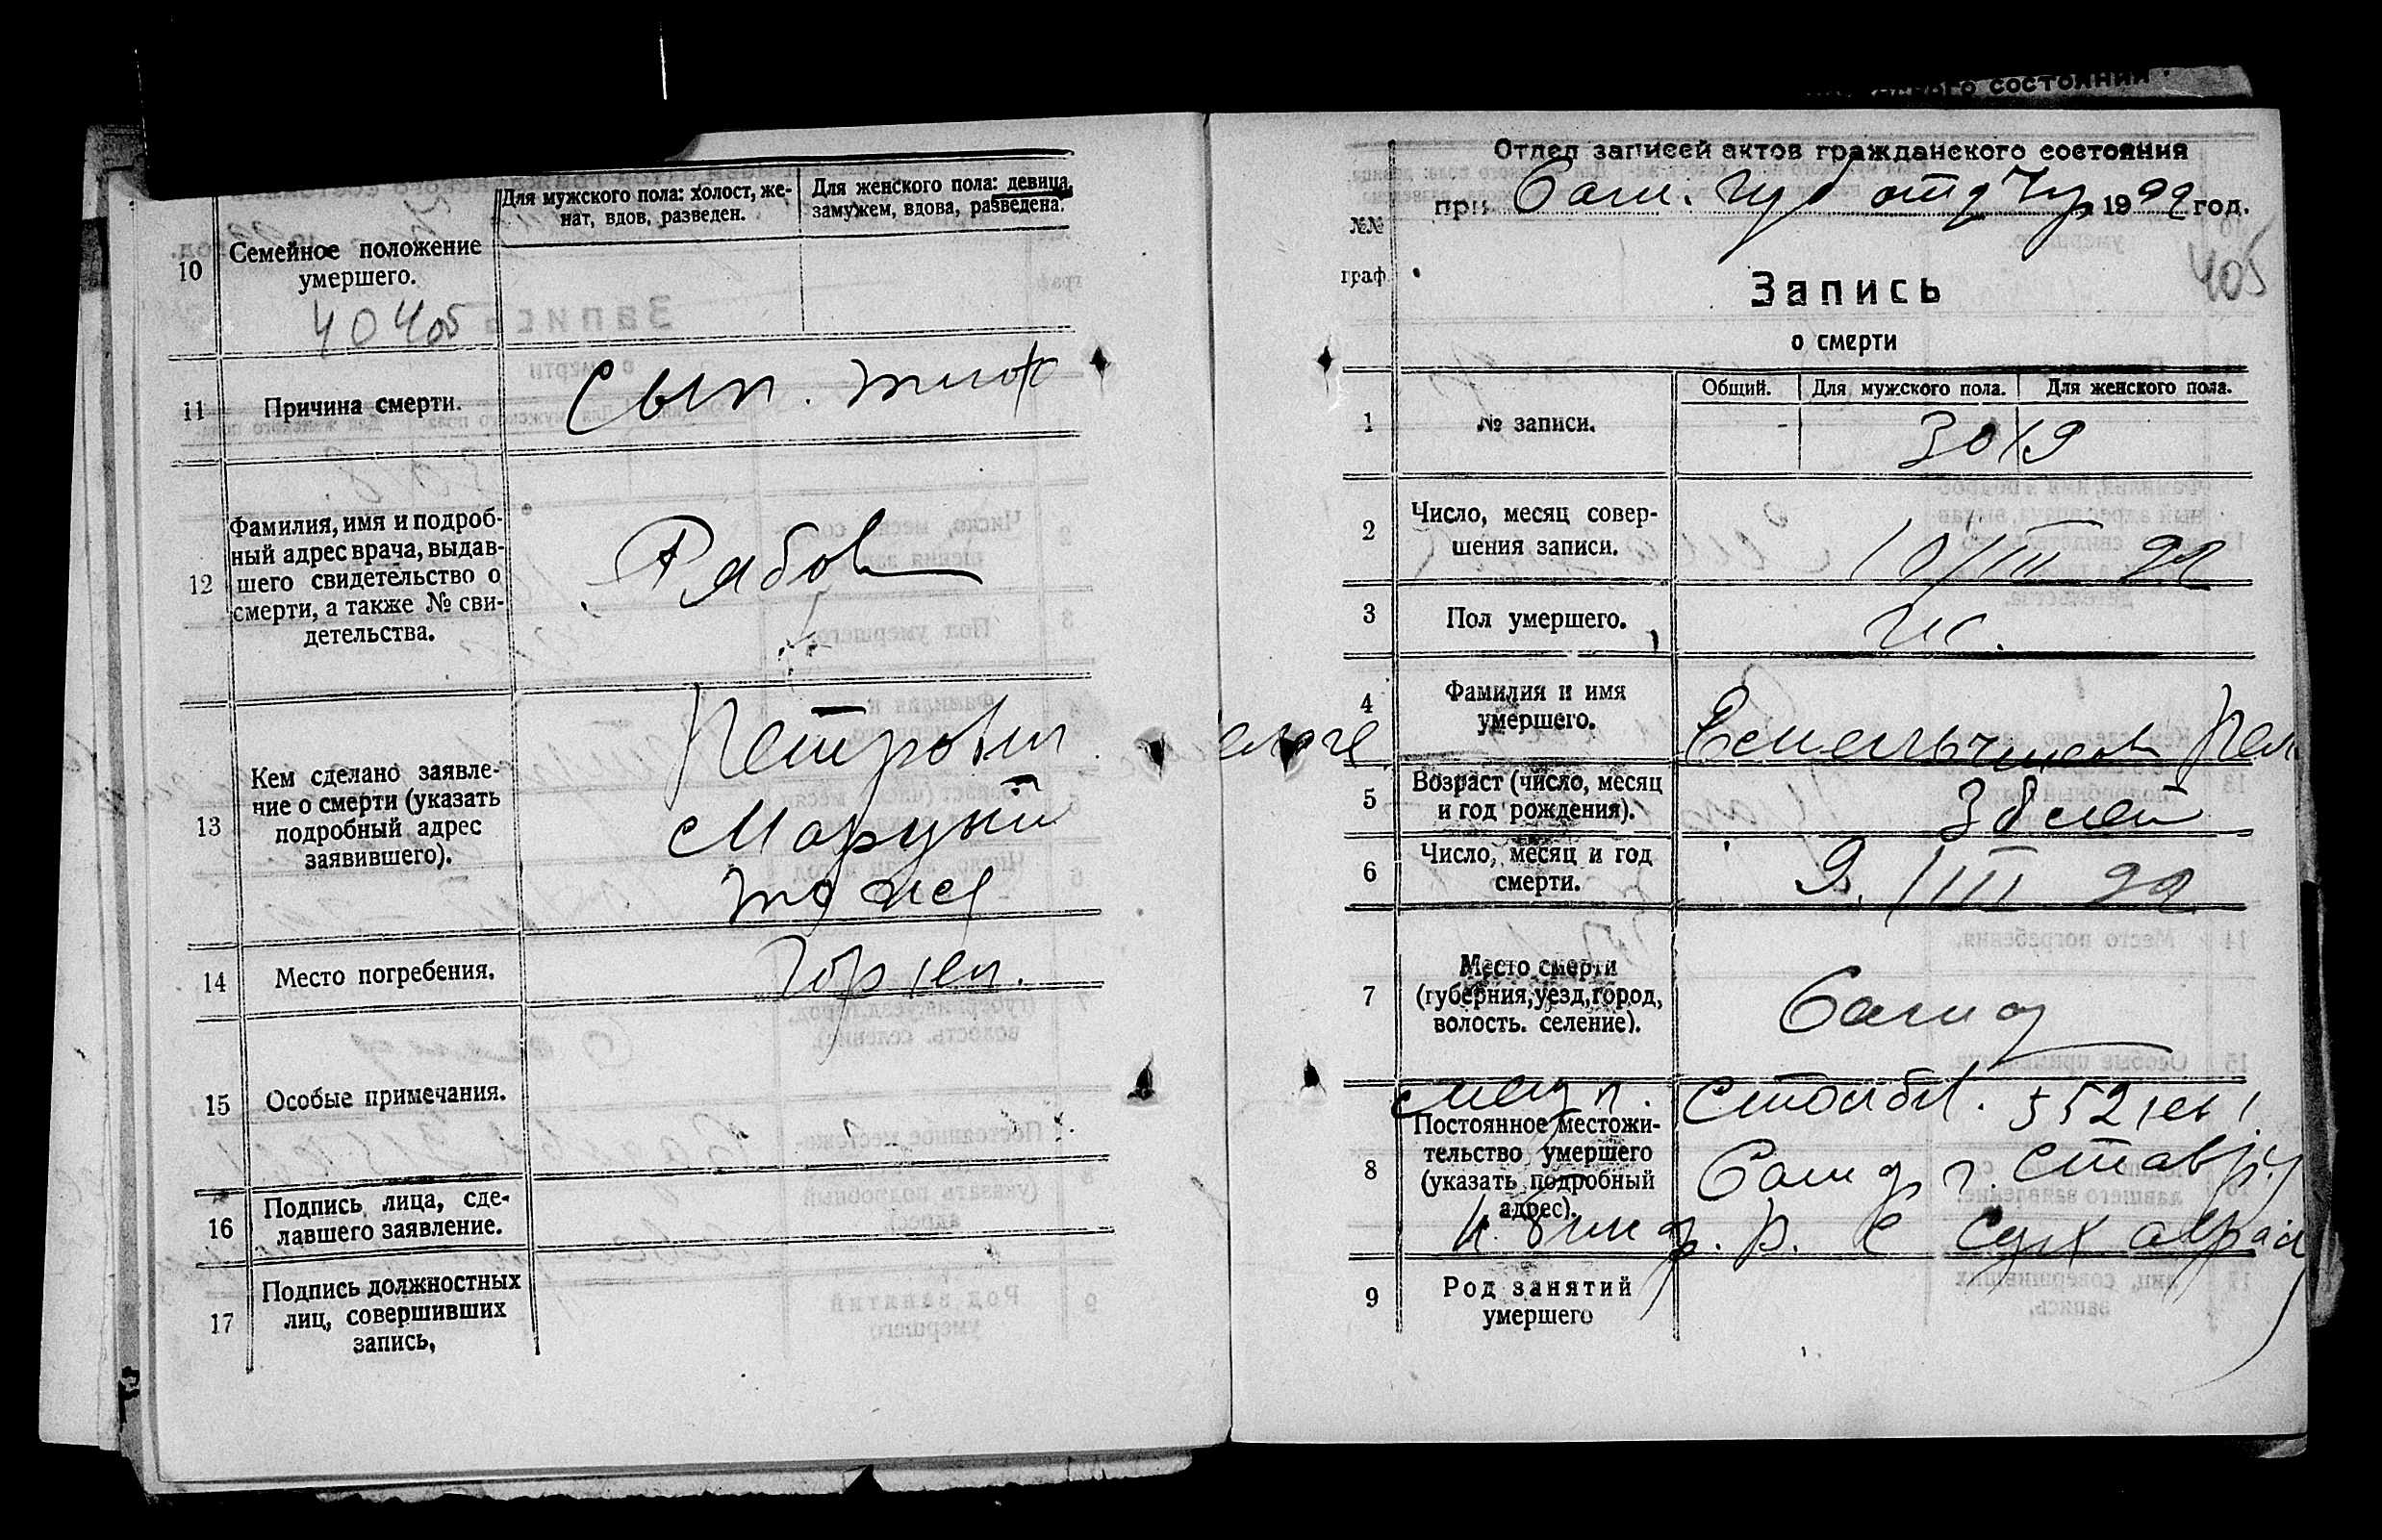 10
Семейное положение
умершего.
Для мужского пола: холост, же-
нат, вдов, разведен.
Для женского пола: девица,
замужем, вдова, разведена.
404
405
11
Причина смерти.
Сып. тиф
12
Фамилия, имя и подроб-
ный адрес врача, выдав-
шего свидетельство о
смерти, а также № сви-
детельства.
Рябов
13
Кем сделано заявле-
ние о смерти (указать
подробный адрес
заявившего).
Петрович
14
Место погребения.
15
Особые примечания.
16
Подпись лица, сде-
лавшего заявление.
17
Подпись должностных
лиц, совершивших
запись,
состояния
Отдел записей актов гражданского состояния
при Сам. Губ отд 1922 год.
405
№№
граф.
Запись
о смерти
1
№ записи.
Общий.
Для мужского пола.
Для женского пола.
3019
2
Число, месяц совер-
шения записи.
10/III 22
3
Пол умершего.
4
Фамилия и имя
умершего.
5
Возраст (число, месяц
и год рождения).
38 лет
6
Число, месяц и год
смерти.
9/III 22
7
Место смерти
(губерния, уезд, город,
волость. селение).
Самар
8
Постоянное местожи-
тельство умершего
(указать подробный
адрес).
552
9
Род занятий
умершего